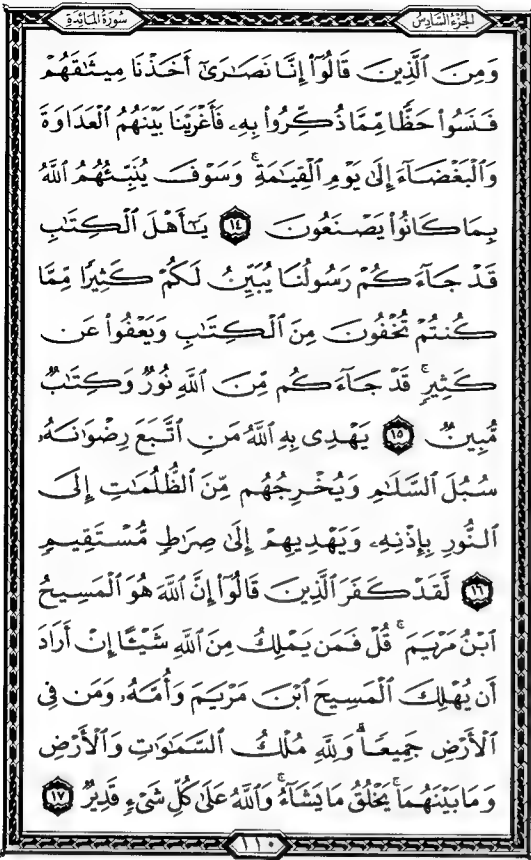 سُورَةُ المَائِدَةِ
الجُزْءُ السَّادِسُ
وَمِنَ ٱلَّذِينَ قَالُوٓاْ إِنَّا نَصَٰرَىٰٓ أَخَذْنَا مِيثَٰقَهُمْ
فَنَسُواْ حَظًّا مِّمَّا ذُكِّرُواْ بِهِۦ فَأَغْرَيْنَا بَيْنَهُمُ ٱلْعَدَاوَةَ
وَٱلْبَغْضَآءَ إِلَىٰ يَوْمِ ٱلْقِيَٰمَةِ ۚ وَسَوْفَ يُنَبِّئُهُمُ ٱللَّهُ
بِمَا كَانُواْ يَصْنَعُونَ ١٤ يَٰٓأَهْلَ ٱلْكِتَٰبِ
قَدْ جَآءَكُمْ رَسُولُنَا يُبَيِّنُ لَكُمْ كَثِيرًا مِّمَّا
كُنتُمْ تُخْفُونَ مِنَ ٱلْكِتَٰبِ وَيَعْفُواْ عَن
كَثِيرٍ ۚ قَدْ جَآءَكُم مِّنَ ٱللَّهِ نُورٌ وَكِتَٰبٌ
مُّبِينٌ ١٥ يَهْدِى بِهِ ٱللَّهُ مَنِ ٱتَّبَعَ رِضْوَٰنَهُۥ
سُبُلَ ٱلسَّلَٰمِ وَيُخْرِجُهُم مِّنَ ٱلظُّلُمَٰتِ إِلَى
ٱلنُّورِ بِإِذْنِهِۦ وَيَهْدِيهِمْ إِلَىٰ صِرَٰطٍ مُّسْتَقِيمٍ
١٦ لَّقَدْ كَفَرَ ٱلَّذِينَ قَالُوٓاْ إِنَّ ٱللَّهَ هُوَ ٱلْمَسِيحُ
ٱبْنُ مَرْيَمَ ۚ قُلْ فَمَن يَمْلِكُ مِنَ ٱللَّهِ شَيْـًٔا إِنْ أَرَادَ
أَن يُهْلِكَ ٱلْمَسِيحَ ٱبْنَ مَرْيَمَ وَأُمَّهُۥ وَمَن فِى
ٱلْأَرْضِ جَمِيعًا ۗ وَلِلَّهِ مُلْكُ ٱلسَّمَٰوَٰتِ وَٱلْأَرْضِ
وَمَا بَيْنَهُمَا ۚ يَخْلُقُ مَا يَشَآءُ ۚ وَٱللَّهُ عَلَىٰ كُلِّ شَىْءٍ قَدِيرٌ ١٧
١١٠